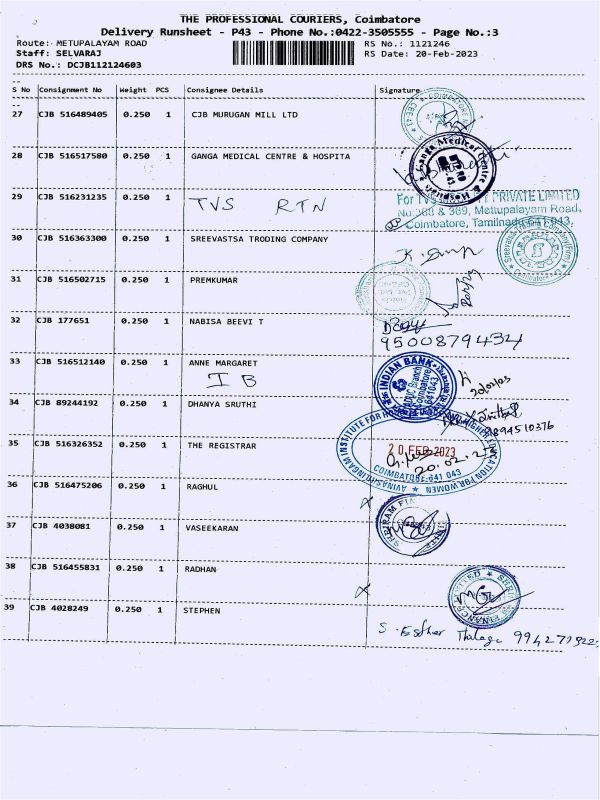 THE PROFESSIONAL COURIERS, Coimbatore
Delivery Runsheet - P43 - Phone No.:0422-3505555 - Page No.:3
Route: METUPALAYAM ROAD
RS No.: 1121246
Staff: SELVARAJ
RS Date: 20-Feb-2023
DRS No.: DCJB112124603
S No Consignment No Weight PCS Consignee Details Signature
27 CJB 516489405 0.250 1 CJB MURUGAN MILL LTD
28 CJB 516517580 0.250 1 GANGA MEDICAL CENTRE & HOSPITA
Ganga Medical Centre & Hospitals
29 CJB 516231235 0.250 1 TVS RTN
For TVS PRIVATE LIMITED
No:368 & 369, Mettupalayam Road,
Coimbatore, Tamilnadu 641 043.
30 CJB 516363300 0.250 1 SREEVASTSA TRODING COMPANY
31 CJB 516502715 0.250 1 PREMKUMAR
32 CJB 177651 0.250 1 NABISA BEEVI T
9500879434
33 CJB 516512140 0.250 1 ANNE MARGARET
IB
INDIAN BANK
Coimbatore
641 043
34 CJB 89244192 0.250 1 DHANYA SRUTHI
9894510376
35 CJB 516326352 0.250 1 THE REGISTRAR
AVINASHILINGAM INSTITUTE FOR HOME SCIENCE AND HIGHER EDUCATION FOR WOMEN
20 FEB 2023
20.02.23
COIMBATORE-641 043
36 CJB 516475206 0.250 1 RAGHUL
37 CJB 4038081 0.250 1 VASEEKARAN
38 CJB 516455831 0.250 1 RADHAN
39 CJB 4028249 0.250 1 STEPHEN
S. Esther